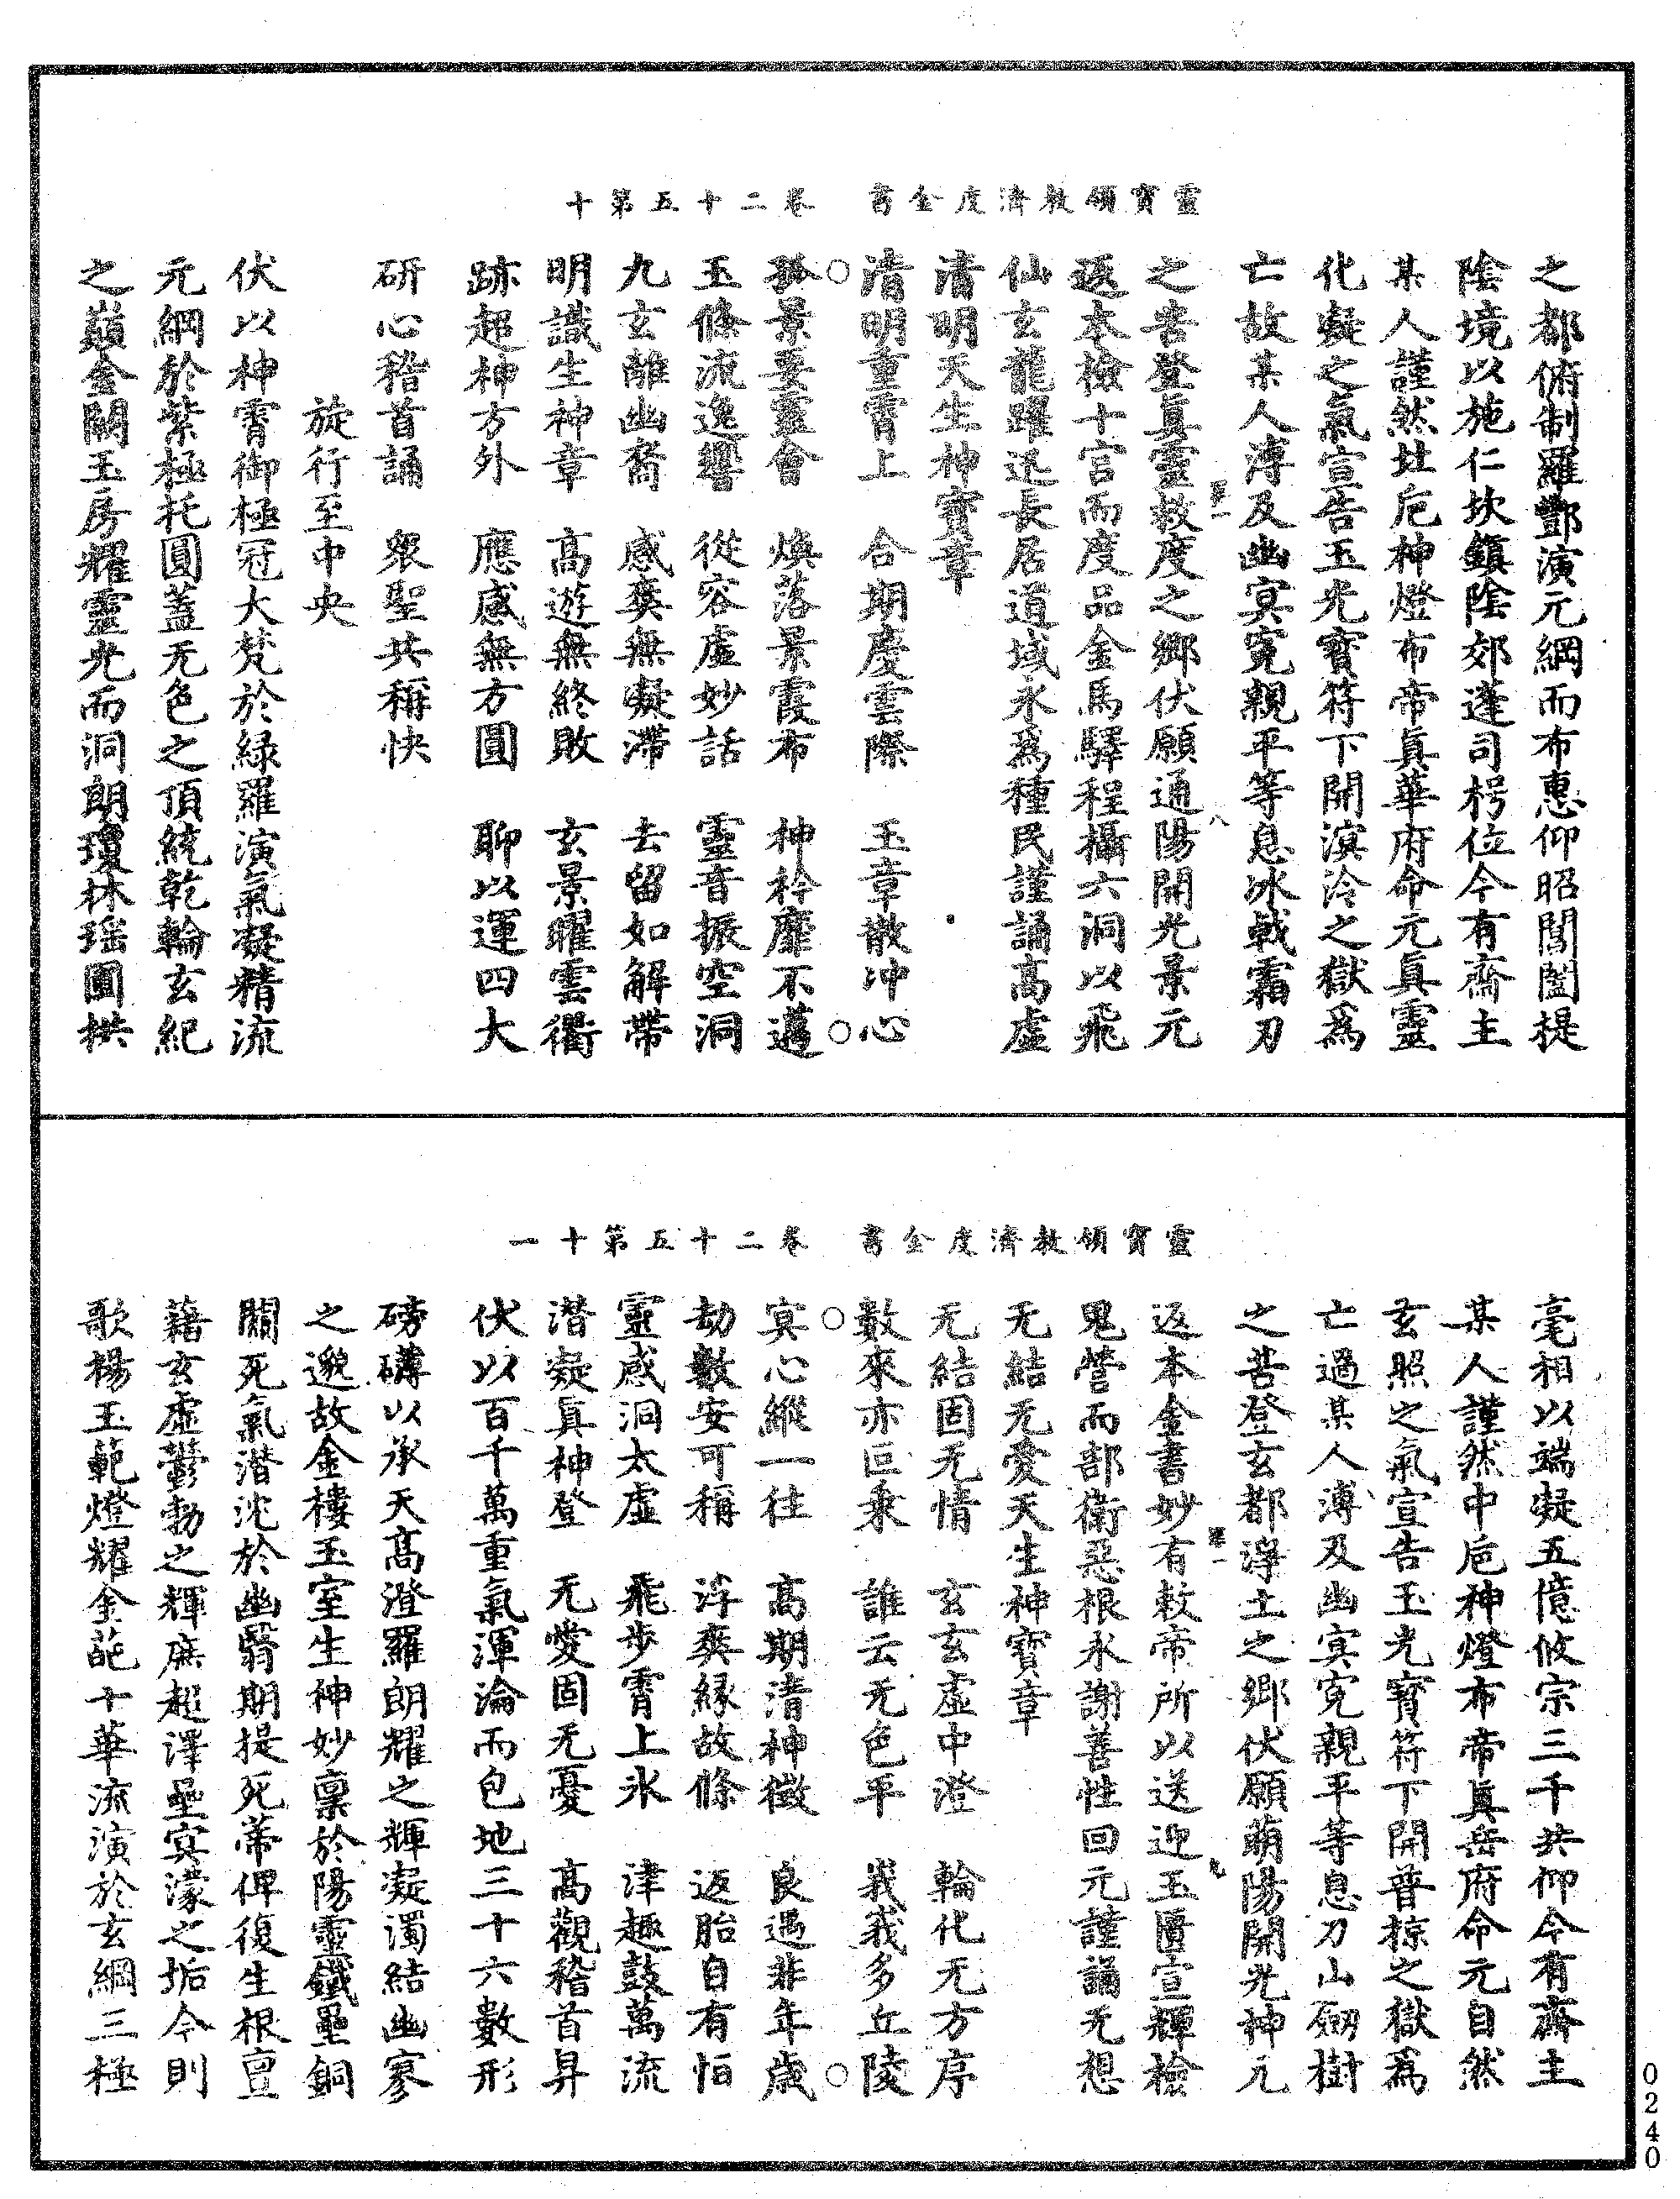 靈寶領教濟度金書　卷二十五第十
之都俯制羅酆演元綱而布惠仰昭閶闔提
陰境以施仁坎鎮陰郊蓬司枵位今有齋主
某人謹然北卮神燈布帝眞華府命元眞靈
化凝之氣宣告玉光寶符下開溟泠之獄爲
亡故某人溥及幽冥寃親平等息冰戟霜刃
之苦登眞靈救度之鄉伏願通陽開光景元
返本檢十宫而度品金馬驛程攝六洞以飛
仙玄龍躍迅長居道域永爲種民謹誦高虛
清明天生神寶章
清明重霄上　合期慶雲際　玉章散冲心
孤景要靈會　煥落景霞布　神衿靡不邁
玉條流逸響　從容虛妙話　靈音振空洞
九玄離幽裔　感爽無凝滯　去留如解帶
明識生神章　高遊無終敗　玄景曜雲衢
跡超神方外　應感無方圓　聊以運四大
研心稽首誦　衆聖共稱快
旋行至中央
伏以神霄御極冠大梵於緑羅演氣凝精流
元綱於紫極托圓蓋无色之頂統乾輪玄紀
之巓金闕玉房耀靈光而洞朗瓊林瑶圃拱
靈寶領教濟度金書　卷二十五第十一
毫相以端凝五億攸宗三千共仰今有齋主
某人謹然中卮神燈布帝眞岳府命元自然
玄照之氣宣告玉光寳符下開普掠之獄爲
亡過某人溥及幽冥寃親平等息刀山劒樹
之苦登玄都淨土之鄉伏願萌陽開光神元
返本金書妙有敕帝所以送迎玉匱宣輝檢
鬼營而部衛惡根永謝善性回元謹誦无想
无結无愛天生神寶章
无結固无情　玄玄虛中澄　輪化无方序
數來亦叵乘　誰云无色平　峩峩多丘陵
冥心縱一往　高期清神徵　良遇非年歲
劫數安可稱　浮爽緣故條　返胎自有恒
靈感洞太虛　飛步霄上氷　津趣鼓萬流
潛凝眞神登　无愛固无憂　高觀稽首昇
伏以百千萬重氣渾淪而包地三十六數形
磅礴以承天高澄羅朗耀之輝凝濁結幽寥
之邈故金樓玉室生神妙禀於陽靈鐵壘銅
關死氣潛沈於幽翳期提死蒂俾復生根亶
藉玄虛鬱勃之輝庶超澤壘冥濛之垢今則
歌楊玉範燈耀金葩十華流演於玄綱三極
0240